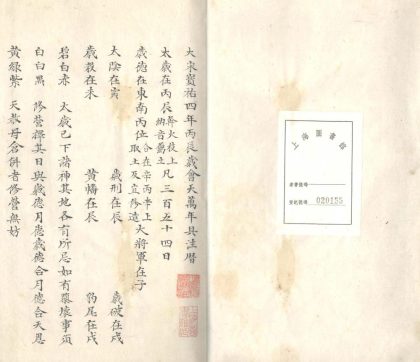 大宋寶祐四年丙辰歲會天萬年具注曆
太歲在丙辰 幹火枝土 納音屬土 凡三百五十四日
歲德在東南丙位 合在辛丙辛上 取土及立修造 大將軍在子
太陰在寅 歲刑在辰 歲破在戌
歲殺在未 黃幡在辰 豹尾在戌
碧白赤 太歲已下諸神其地各有所忌如有隳壞事須
白白黑 修營擇其日與歲德月德歲德合月德合天恩
黃綠紫 天赦母倉併者修營無妨
上海圖書館
索書號碼
登記號碼 020155